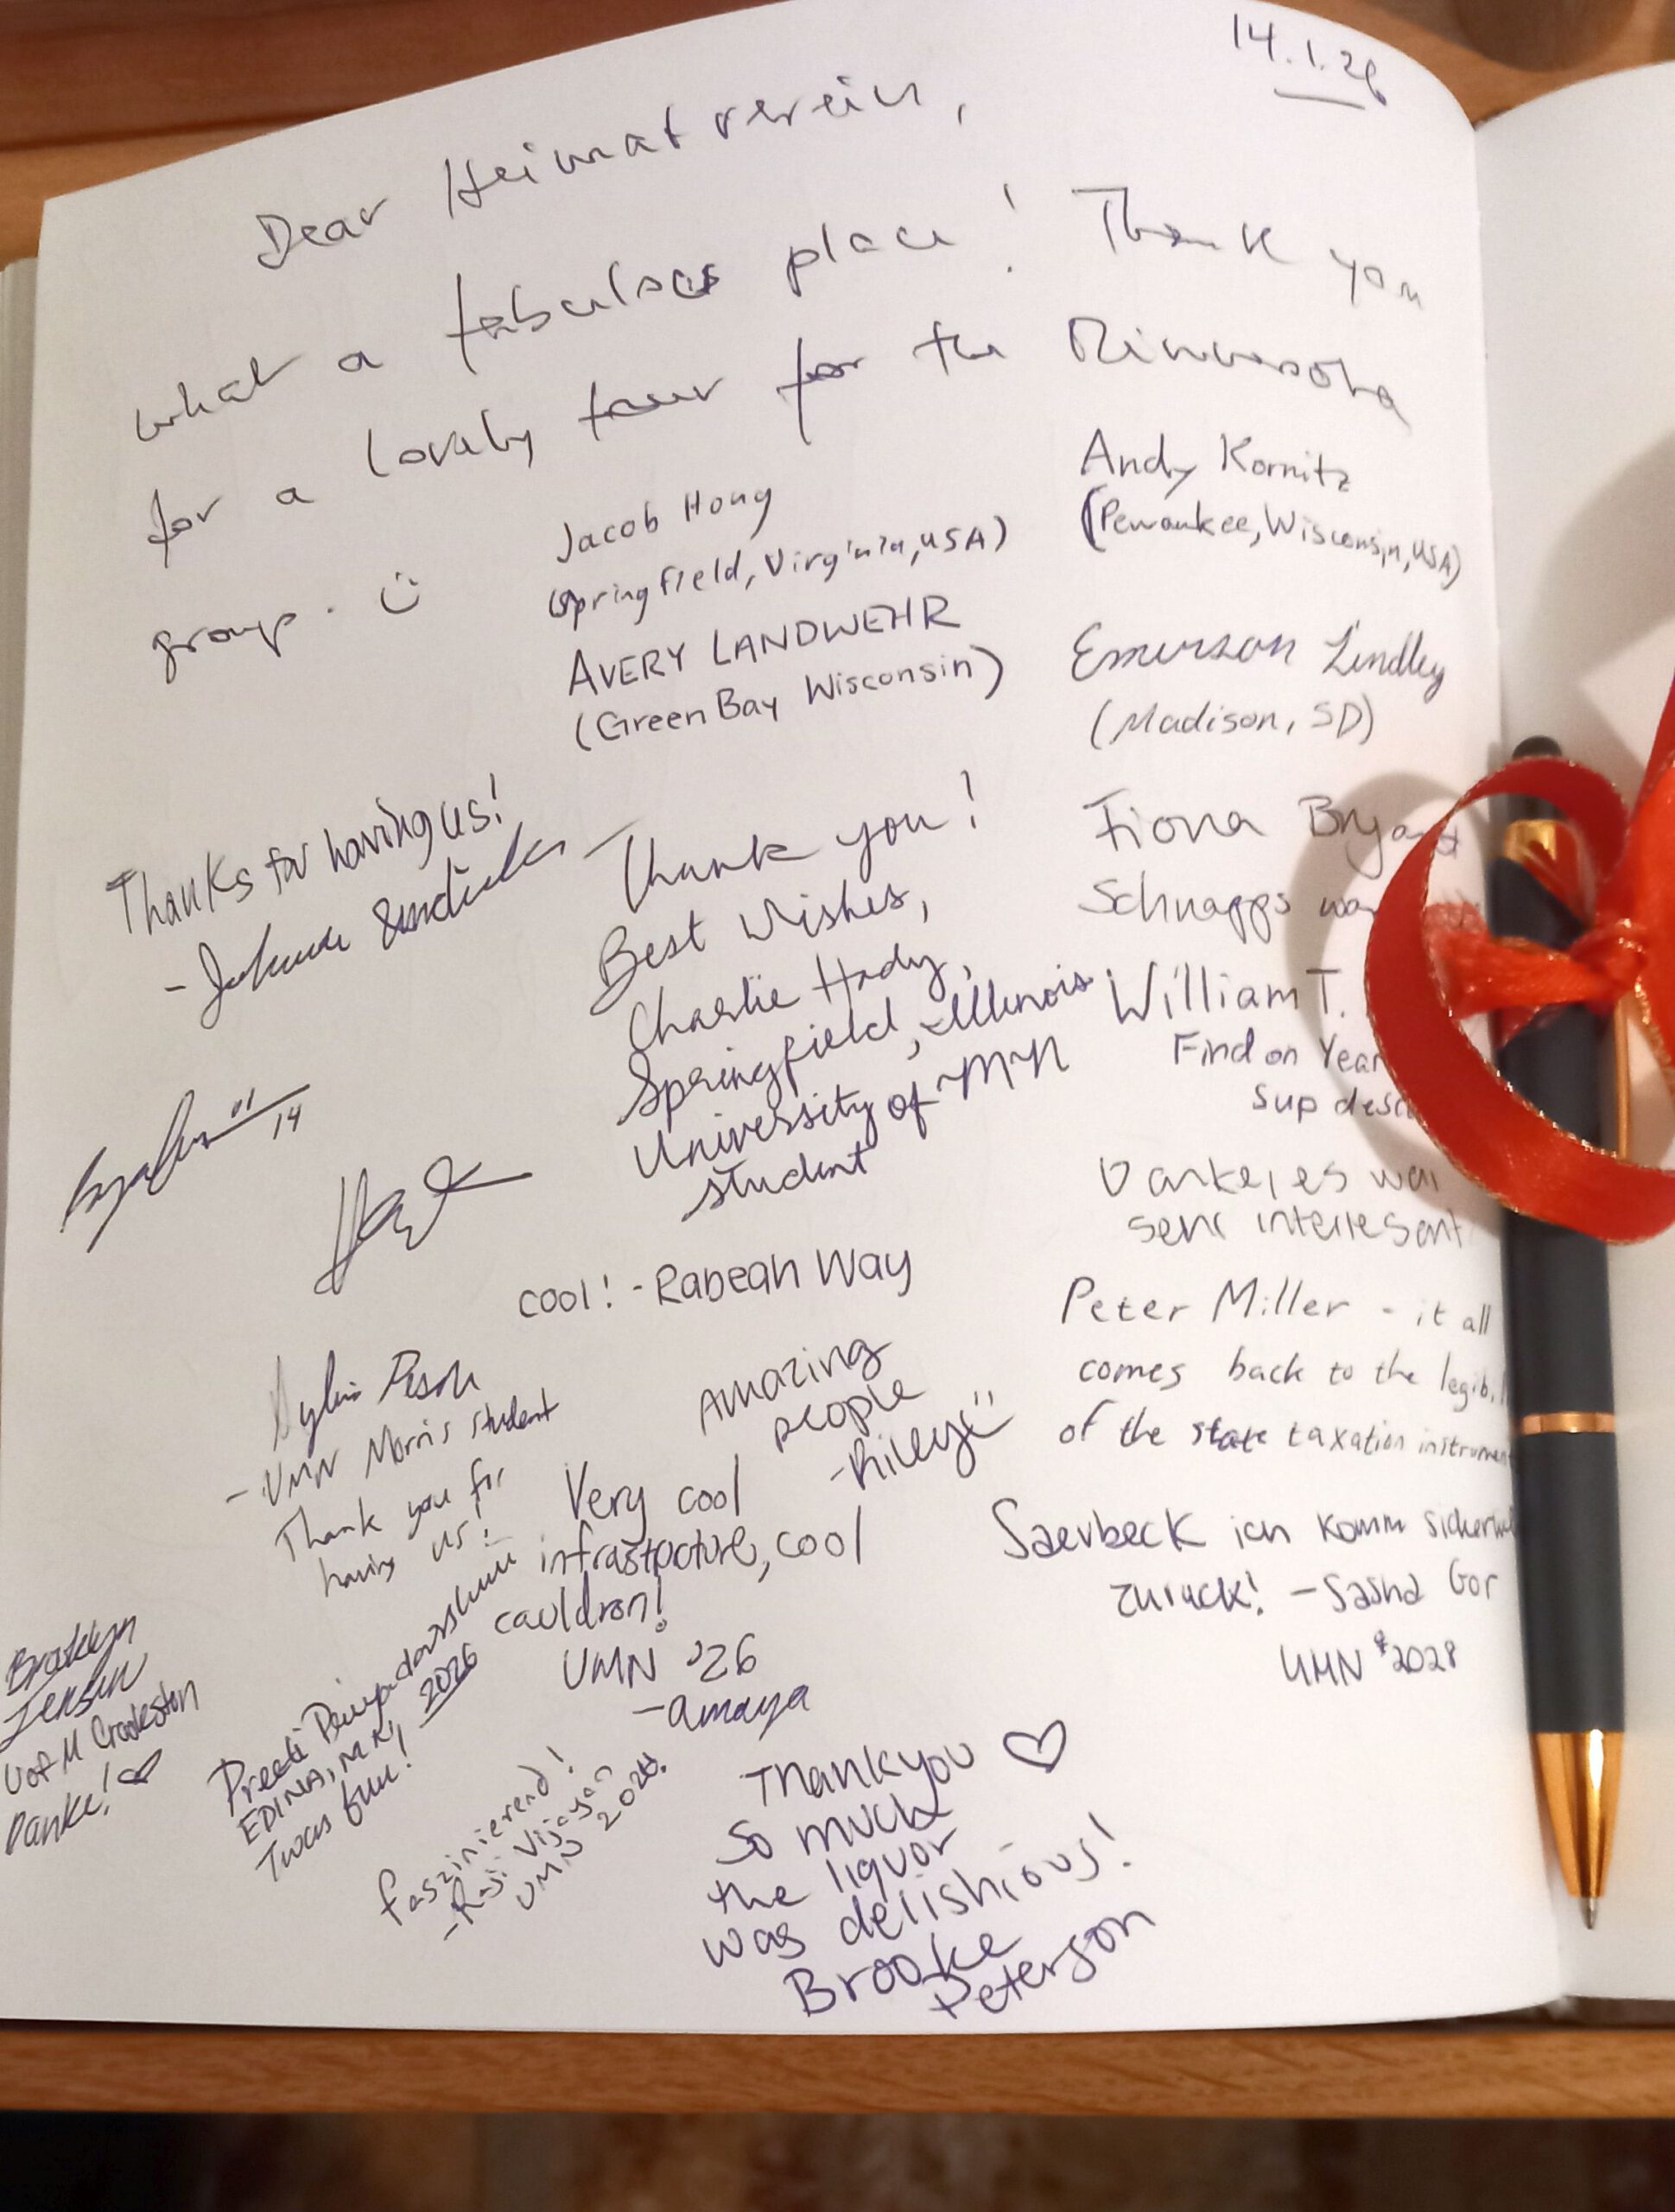 14.1.26
Dear Heimatverein,
what a fabulous place! Thank you
for a lovely tour for the Minnesota
group. :)
Jacob Hong
Springfield, Virginia, USA)
AVERY LANDWEHR
(Green Bay Wisconsin)
Andy Kornitz
(Pewaukee, Wisconsin, USA)
Emerson Lindley
(Madison, SD)
Thanks for having us!
Thank you!
Best Wishes,
Charlie Hady,
Springfield, Illinois
University of MN
student
01/14
Fiona
Schnapps
William T.
Find on Year
Sup
Danke, es war
sehr interresant
cool! - Rabeah Way
Peter Miller - it all
comes back to the
of the state taxation
UMN Morris student
Thank you for
having us!
Amazing
people
-Riley :)
Very cool
infrastructure, cool
cauldron!
UMN '26
-Amaya
Saerbeck ich komm
zurück! - Sasha Gor
UMN 2028
Brooklyn
Jensen
U of M Crookston
Danke! ♡
Preeti
EDINA, MN, 2026
Twas fun!
faszinierend!
-Raji Vijayan
UMN
Thank you ♡
so much
the liquor
was delishious!
Brooke
Peterson